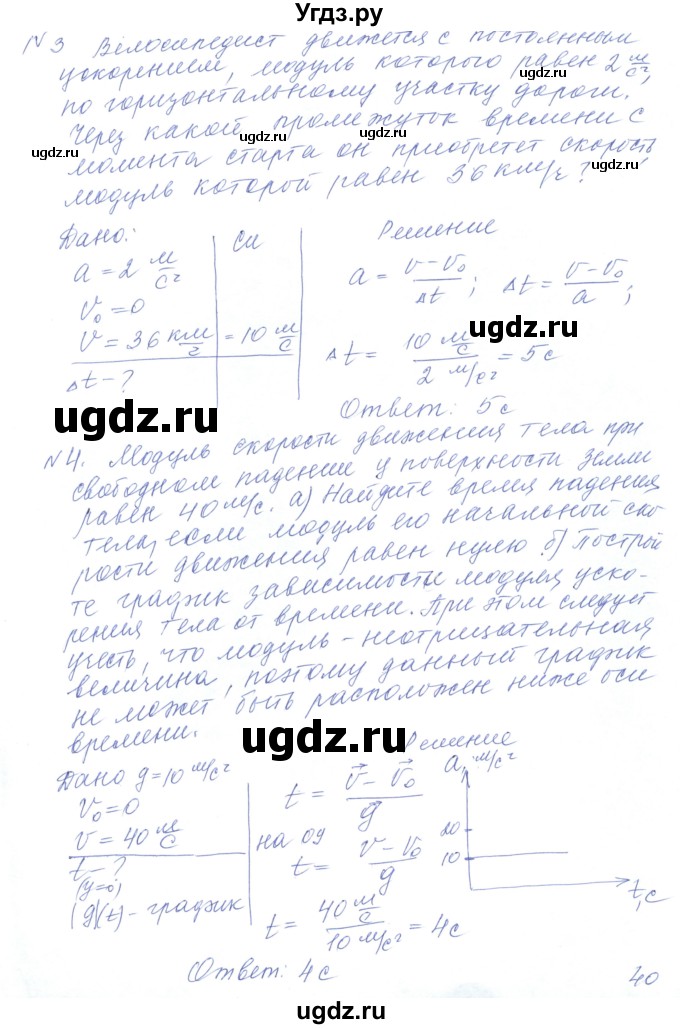 Угдз.ру
№3 Велосипедист движется с постоянным
ускорением, модуль которого равен 2 м/с²,
по горизонтальному участку дороги.
Через какой промежуток времени с
момента старта он приобретет скорость,
модуль которой равен 36 км/г?
Дано: СИ Решение
a = 2 м/с²
a = (v - v₀)/Δt ; Δt = (v - v₀)/a ;
v₀ = 0
v = 36 км/г = 10 м/с
Δt = (10 м/с)/(2 м/с²) = 5 с
Δt - ?
Ответ: 5 с
№4. Модуль скорости движения тела при
свободном падении у поверхности Земли
равен 40 м/с. а) Найдите время падения
тела, если модуль его начальный ско-
рости движения равен нулю б) Построй
те график зависимости модуля уско-
рения тела от времени. При этом следует
учесть, что модуль - неотрицательная
величина, поэтому данный график
не может быть расположен ниже оси
времени.
Решение
Дано g = 10 м/с²
v₀ = 0
v = 40 м/с
t - ?
(y = 0)
|g|(t) - график
t = (v⃗ - v⃗₀)/g⃗
на oy
t = (v - v₀)/g
t = (40 м/с)/(10 м/с²) = 4 с
a, м/с²
20
10
t, с
Ответ: 4 с
40
ugdz.ru
ugdz.ru
ugdz.ru
ugdz.ru
ugdz.ru
ugdz.ru
ugdz.ru
ugdz.ru
ugdz.ru
ugdz.ru
ugdz.ru
ugdz.ru